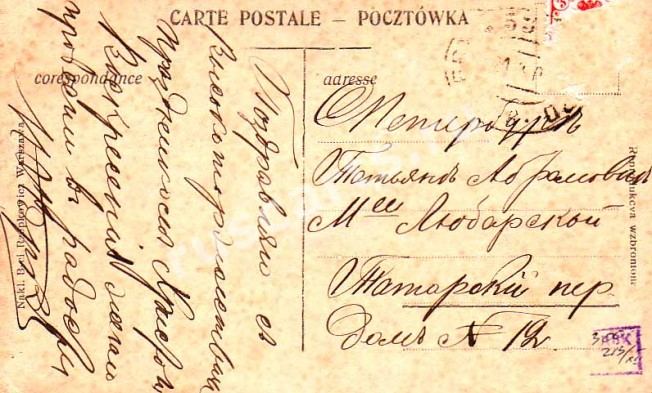 CARTE POSTALE – POCZTÓWKA
corespondance
adresse
Поздравляю съ
высокоторжественнымъ
праздникомъ Христова
Воскресенія желаю
провести въ радости
СПетербургъ
Татьянѣ Абрамовнѣ
Mlle Любарской
Татарскій пер.
Домъ № 12
Nakl. Br-ci Rzepkowicz Warszawa
Reprodukcya wzbroniona